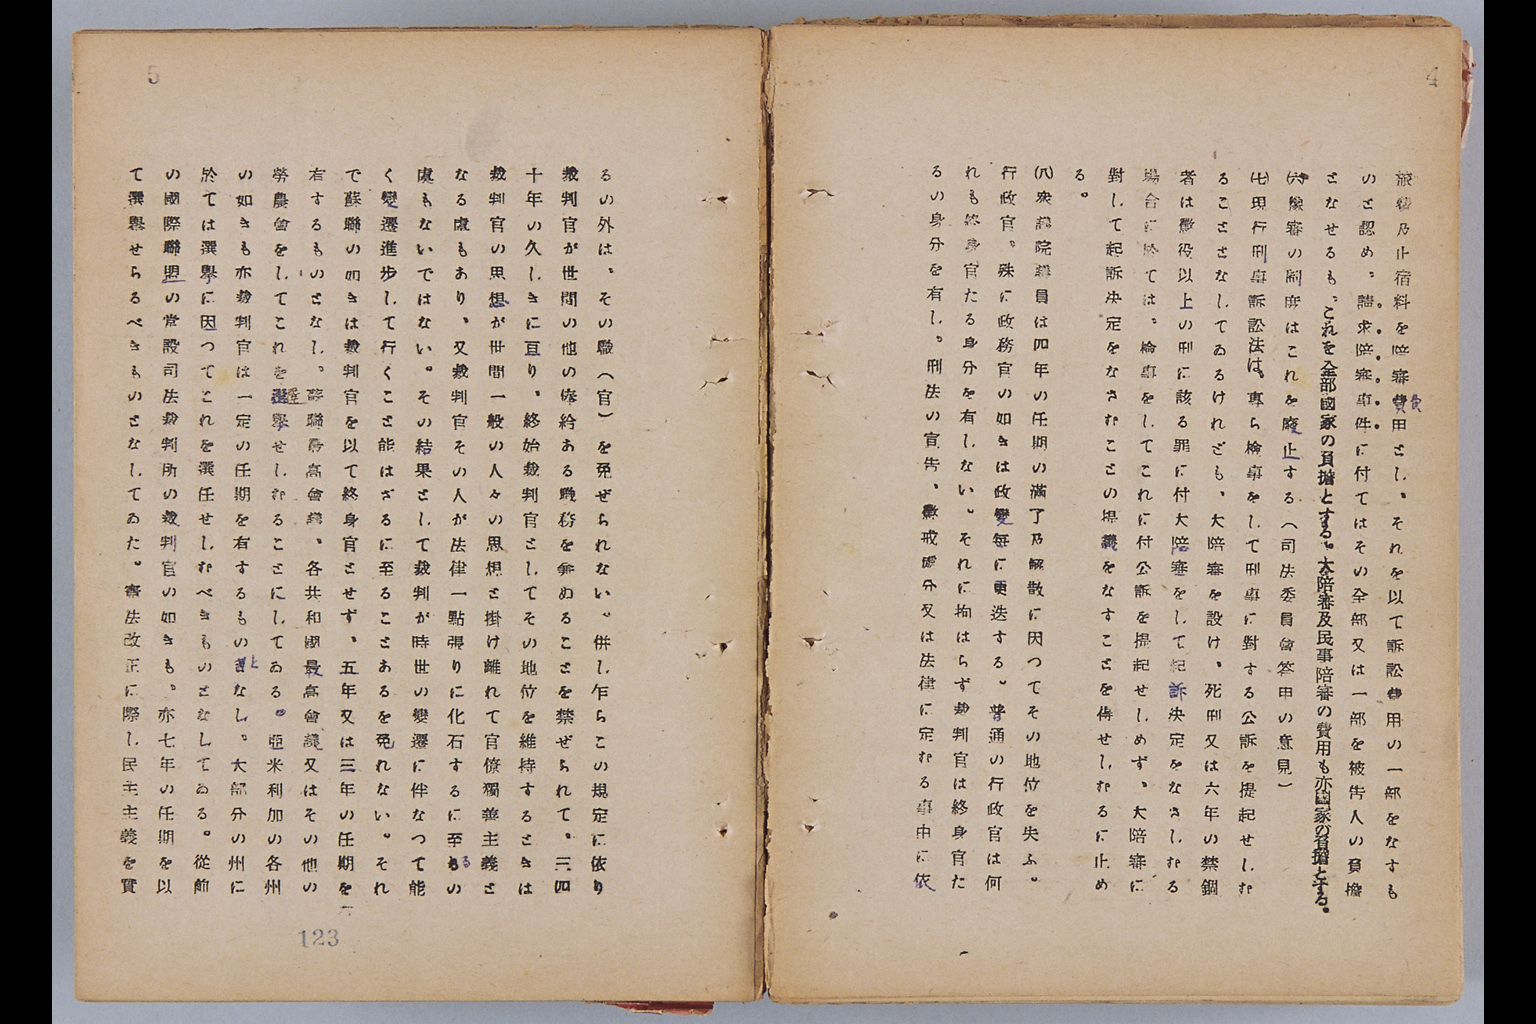 4
旅費及止宿料を陪審費用とし、それを以て訴訟費用の一部をなすも
のと認め、請求陪審事件に付てはその全部又は一部を被告人の負擔
となせるも、これを全部國家の負擔とする。大陪審及民事陪審の費用も亦國家の負擔とする。
㈥陪審の制度はこれを廢止する（司法委員會答申の意見）
㈦現行刑事訴訟法は、專ら檢事をして刑事に對する公訴を提起せしむ
ることとなしてゐるけれども、大陪審を設け、死刑又は六年の禁錮
者は懲役以上の刑に該る罪に付大陪審をして起訴決定をなさしむる
場合に於ては、檢事をしてこれに付公訴を提起せしめず、大陪審に
對して起訴決定をなさむことの提議をなすことを得せしむるに止め
る。
㈧衆議院議員は四年の任期の滿了及解散に因つてその地位を失ふ。
行政官。殊に政務官の如きは政變毎に更迭する。普通の行政官は何
れも終身官たる身分を有しない。それに拘はらず裁判官は終身官た
るの身分を有し、刑法の宣告、懲戒處分又は法律に定むる事由に依
5
るの外は、その職（官）を免ぜられない。併し乍らこの規定に依り
裁判官が世間の他の俸給ある職務を兼ぬることを禁ぜられて、三四
十年の久しきに亘り、終始裁判官としてその地位を維持するときは
裁判官の思想が世間一般の人々の思想と掛け離れて官僚獨善主義と
なる虞もあり、又裁判官その人が法律一點張りに化石するに至るの
虞もないではない。その結果として裁判が時世の變遷に伴なつて能
く變遷進步して行くこと能はざるに至ることあるを免れない。それ
で蘇聯の如きは裁判官を以て終身官とせず、五年又は三年の任期を
有するものとなし、蘇聯最高會議、各共和國最高會議又はその他の
勞農會をしてこれを選擧せしむることにしてゐる。亞米利加の各州
の如きも亦裁判官は一定の任期を有するものとなし。大部分の州に
於ては選擧に因つてこれを選任せしむべきものとなしてゐる。從前
の國際聯盟の常設司法裁判所の裁判官の如きも、亦七年の任期を以
て選擧せらるべきものとなしてゐた。憲法改正に際し民主主義を實
123